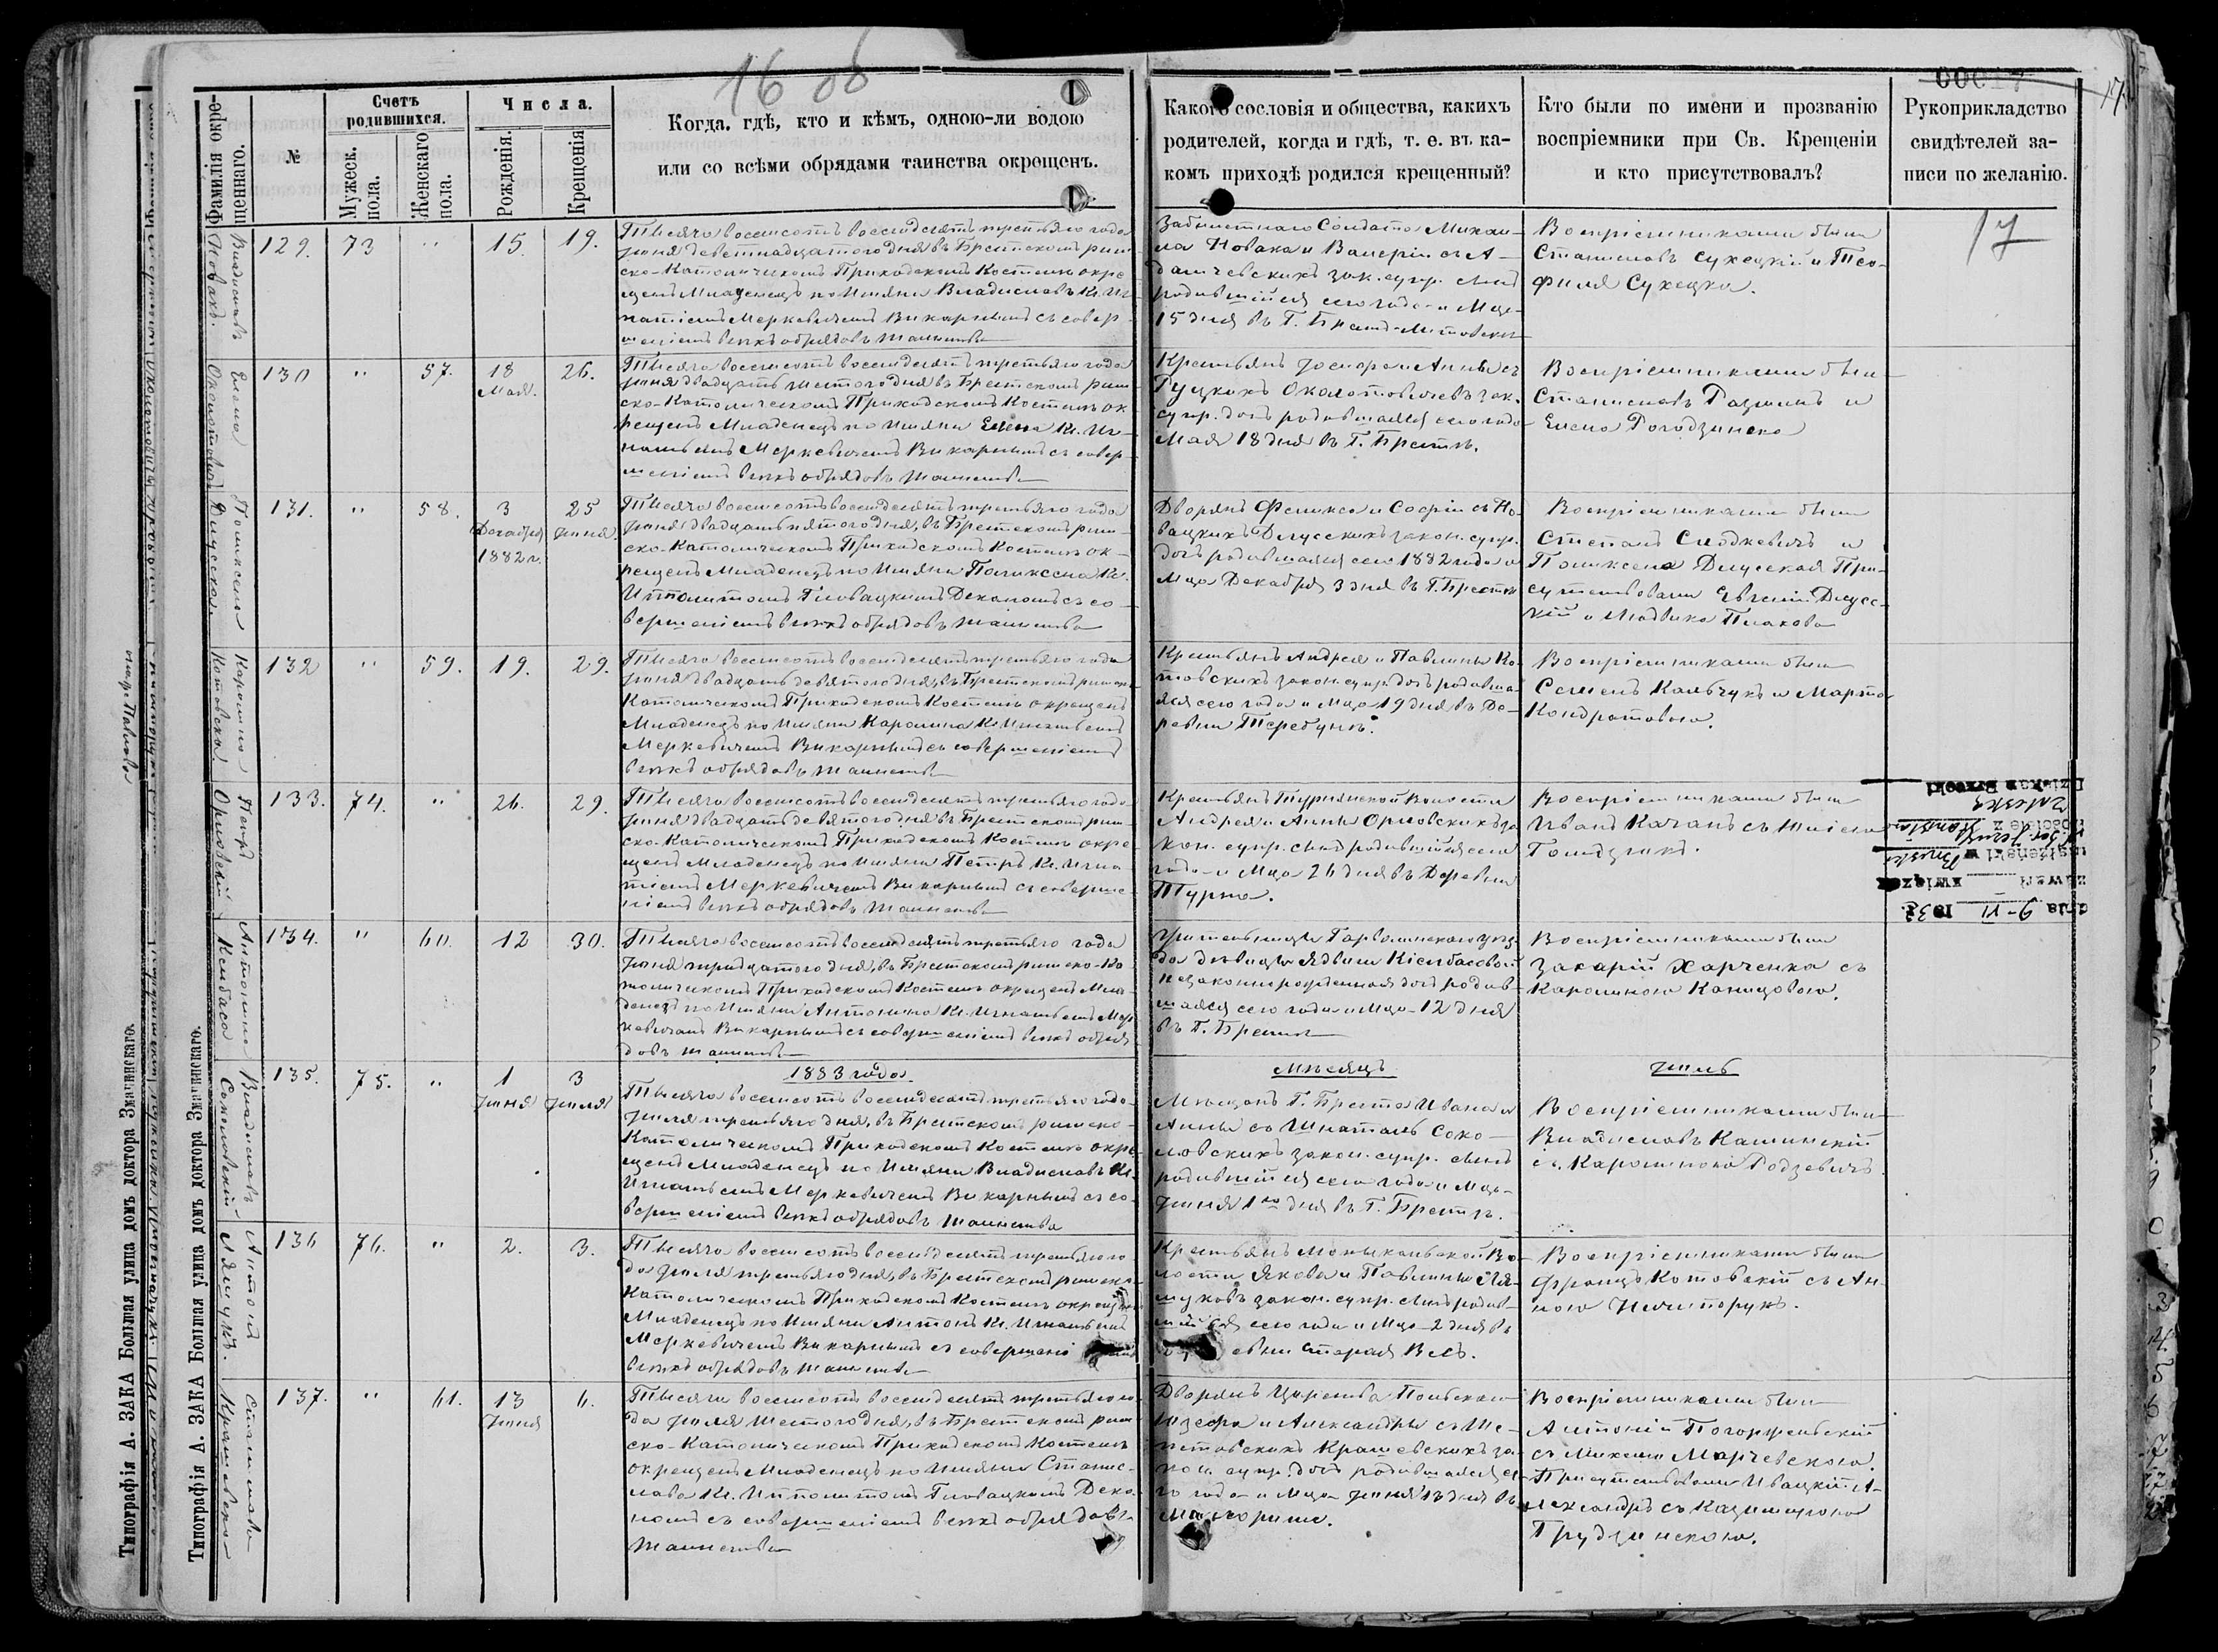 16 об
00017
17
Фамилія окрещеннаго.
№
Счетъ родившихся.
Мужеск. пола.
Женскаго пола.
Числа.
Рожденія.
Крещенія
Когда. гдѣ, кто и кѣмъ, одною-ли водою
или со всѣми обрядами таинства окрещенъ.
Какого сословія и общества, какихъ
родителей, когда и гдѣ, т. е. въ ка-
комъ приходѣ родился крещенный?
Кто были по имени и прозванію
воспріемники при Св. Крещеніи
и кто присутствовалъ?
Рукоприкладство
свидѣтелей за-
писи по желанію.
17
Владиславъ
Новакъ.
129. 73 " 15. 19.
Тысяча восемсотъ восемдесятъ третьяго года
Іюня девятнадцатого дня въ Брестскомъ рим
ско-Католическомъ Приходскомъ Костелѣ окре
щенъ Младенецъ по Имяни Владиславъ Кс. Иг
натіемъ Меркевичемъ Викарнымъ съ совер-
шеніемъ всѣхъ обрядовъ таинства
Забилетнаго Солдата Михаи-
ла Новака и Валеріи съ А-
дамчевскихъ зак. супр. сынъ
родившійся сего года и Мца
15 дня въ Г. Брестъ-Литовскѣ
Воспріемниками были
Станиславъ Сухецкій и Тео-
филя Сухецка.
Елена
Околотовичъ
130 " 57. 18 Мая. 26.
Тысяча восемсотъ восемдесятъ третьяго года
Іюня двадцать шестого дня въ Брестскомъ рим
ско-Католическомъ Приходскомъ Костелѣ ок
рещенъ Младенецъ по Имяни Елена Кс. Иг-
натьемъ Меркевичемъ Викарнымъ съ совер-
шеніемъ всѣхъ обрядовъ таинства
Крестьянъ Григорія и Анны съ
Гуцкихъ Околотовичевъ зак.
супр. дочь родившаяся сего года
Мая 18 дня въ Г. Брестѣ.
Воспріемниками были
Станиславъ и
Елена Рогодзинска
Поликсена
Длусская
131. " 58. 3 Декабря 1882 г. 25 Іюня.
Тысяча восемсотъ восемдесятъ третьяго года
Іюня двадцать пятого дня, въ Брестскомъ рим-
ско-Католическомъ Приходскомъ Костелѣ ок-
рещенъ Младенецъ по Имяни Поликсена Кс.
Ипполитомъ Гловацкимъ Деканомъ съ со-
вершеніемъ всѣхъ обрядовъ таинства
Дворянъ Феликса и Софіи съ Но-
вацкихъ Длусскихъ закон. супр.
дочь родившаяся сего 1882 года и
Мца Декабря 3 дня въ Г. Брестѣ
Воспріемниками были
Степанъ Сподкевичъ и
Поликсена Длусская При-
сутствовали Евгеній Длусс-
кій и Людвика
Каролина
Котовска
132 " 59. 19. 29.
Тысяча восемсотъ восемдесятъ третьяго года
Іюня двадцать девятого дня, въ Брестскомъ римско-
Католическомъ Приходскомъ Костелѣ окрещенъ
Младенецъ по Имяни Каролина Кс. Игнатьемъ
Меркевичемъ Викарнымъ съ совершеніемъ
всѣхъ обрядовъ таинства
Крестьянъ Андрея и Павлины Ко-
товскихъ закон. супр. дочь родивша-
яся сего года и Мца 19 дня въ Де-
ревни Теребунь.
Воспріемниками были
Семенъ Кальчукъ и Марта
Кондратовою.
Петръ
Орловскій
133. 74. " 26. 29.
Тысяча восемсотъ восемдесятъ третьяго года
Іюня двадцать девятого дня въ Брестскомъ рим-
ско-Католическомъ Приходскомъ Костелѣ окре-
щенъ Младенецъ по Имяни Петръ Кс. Игна-
тіемъ Меркевичемъ Викарнымъ съ соверше-
ніемъ всѣхъ обрядовъ таинства
Крестьянъ Турнянской Волости
Андрея и Анны Орловскихъ за
кон. супр. сынъ родившійся сего
года и Мца 26 дня въ Деревни
Турна.
Воспріемниками были
Иванъ Качанъ съ
Антонина
Келбаса
134. " 60. 12 30.
Тысяча восемсотъ восемдесятъ третьяго года
Іюня тридцатого дня, въ Брестскомъ римско-Ка-
толическомъ Приходскомъ Костелѣ окрещенъ Мла-
денецъ по Имяни Антонина Кс. Игнатьемъ Мер
кевичемъ Викарнымъ съ совершеніемъ всѣхъ обря
довъ таинства
Гарволинского уѣз-
да дѣвицы Ядвиги Кіелбасовой
Незаконнорожденная дочь родив-
шаяся сего года и Мца 12 дня
въ Г. Брестѣ
Воспріемниками были
Захарій Харченка съ
Каролиною
Владиславъ
Соколовскій
135. 75. " 1 Іюня 3 Іюля
1883 года
Мѣсяцъ
Іюль
Тысяча восемсотъ восемдесятъ третьяго года
Іюля третьяго дня, въ Брестскомъ римско-
Католическомъ Приходскомъ Костелѣ окре-
щенъ Младенецъ по Имяни Владиславъ Кс.
Игнатьемъ Меркевичемъ Викарнымъ съ со-
вершеніемъ всѣхъ обрядовъ таинства
Мѣщанъ Г. Бреста Ивана и
Анны съ Соко-
ловскихъ закон. супр. сынъ
родившійся сего года и Мца
Іюня 1го дня въ Г. Брестѣ.
Воспріемниками были
Владиславъ Калинскій
съ Каролиною Родзевичъ
Антонъ
Ляшукъ.
136 76. " 2. 3.
Тысяча восемсотъ восемдесятъ третьяго го
да Іюля третьяго дня, въ Брестскомъ римско-
Католическомъ Приходскомъ Костелѣ окрещенъ
Младенецъ по Имяни Антонъ Кс. Игнатьемъ
Меркевичемъ Викарнымъ съ совершені
всѣхъ обрядовъ таинства
Крестьянъ Мотыкальской Во-
лости Якова и Павлины Ля-
шуковъ закон. супр. сынъ родив-
шійся сего года и Мца 2 дня въ
евни Старая Весь.
Воспріемниками были
Францъ Котовскій съ Ан-
ною Ничипорукъ.
Станислава
Крашевска
137. " 61. 13 Іюня 6.
Тысяча восемсотъ восемдесятъ третьяго го
да Іюля шестого дня, въ Брестскомъ рим-
ско-Католическомъ Приходскомъ Костелѣ
окрещенъ Младенецъ по Имяни Станис-
лава Кс. Ипполитомъ Гловацкимъ Дека-
номъ съ совершеніемъ всѣхъ обрядовъ
таинства
Дворянъ Царства Польскаго
и Александры съ Ше-
петовскихъ Крашевскихъ за-
кон. супр. дочь родившаяся се-
го года и Мца Іюня 13 дня въ
Воспріемниками были
Антоній Погоржельскій
съ Марчевскою.
Присутствовали Ивацкій А-
лександръ съ Казимирою
Грудзинскою.
9-VI 193
Типографія А. ЗАКА Большая улица домъ доктора Знаминскаго.
Типографія А. ЗАКА Большая улица домъ доктора Знаминскаго.